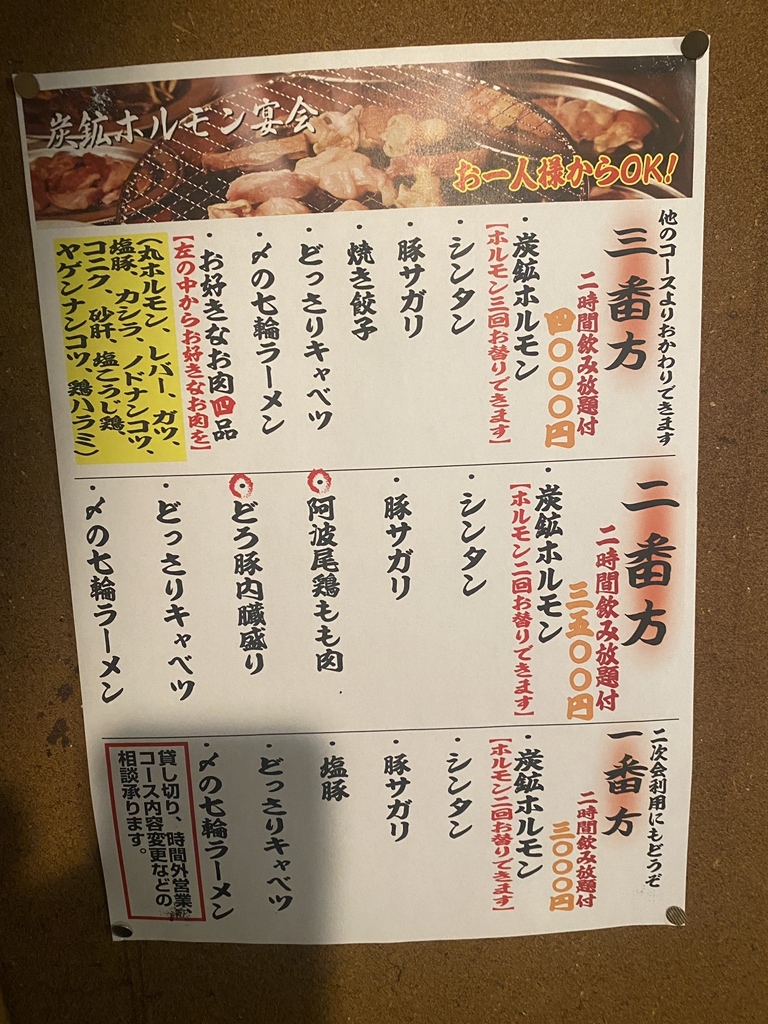 炭鉱ホルモン宴会
お一人様からOK!
他のコースよりおかわりできます
三番方
二時間飲み放題付
四〇〇〇円
・炭鉱ホルモン
【ホルモン三回お替りできます】
・シンタン
・豚サガリ
・焼き餃子
・どっさりキャベツ
・〆の七輪ラーメン
・お好きなお肉四品
【左の中からお好きなお肉を】
(丸ホルモン、レバー、ガツ、
塩豚、カシラ、ノドナンコツ、
コニク、砂肝、塩こうじ鶏、
ヤゲンナンコツ、鶏ハラミ)
二番方
二時間飲み放題付
三五〇〇円
・炭鉱ホルモン
【ホルモン二回お替りできます】
・シンタン
・豚サガリ
・阿波尾鶏もも肉
・どろ豚内臓盛り
・どっさりキャベツ
・〆の七輪ラーメン
二次会利用にもどうぞ
一番方
二時間飲み放題付
三〇〇〇円
・炭鉱ホルモン
【ホルモン二回お替りできます】
・シンタン
・豚サガリ
・塩豚
・どっさりキャベツ
・〆の七輪ラーメン
貸し切り、時間外営業
コース内容変更などの
相談承ります。